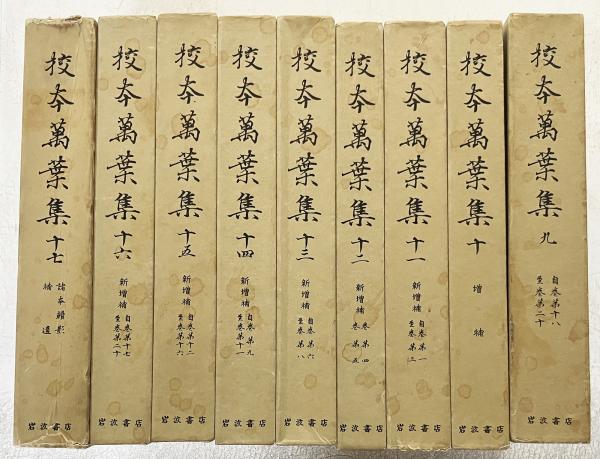 校本萬葉集 九
自卷第十八
至卷第二十
校本萬葉集 十
增補
岩波書店
校本萬葉集 十一
新增補
自卷第一
至卷第三
岩波書店
校本萬葉集 十二
新增補
卷第四
卷第五
岩波書店
校本萬葉集 十三
新增補
自卷第六
至卷第八
岩波書店
校本萬葉集 十四
新增補
自卷第九
至卷第十一
岩波書店
校本萬葉集 十五
新增補
自卷第十二
至卷第十六
岩波書店
校本萬葉集 十六
新增補
自卷第十七
至卷第二十
岩波書店
校本萬葉集 十七
諸本輯影
補遺
岩波書店